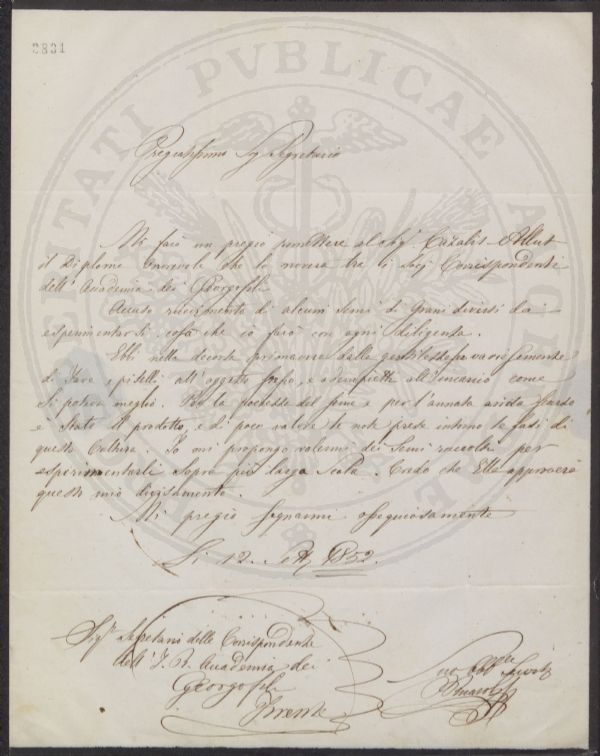 2831
PUBLICAE
Pregiatissimo Sig Segretario
Mi farò un pregio rimettere al Sig. Cazalis-Allut
il Diploma Onorevole che lo novera tra li Socj Corrispondenti
dell' Accademia dei Georgofili
Accuso ricevimento di alcuni Semi di Grani diversi da
esperimentarsi, cosa che io farò con ogni diligenza.
Ebbi nella decorsa primavera dalla gentilezza varie Semente
di Fave, e piselli all' oggetto stesso, e adempietti all' incarico come
si poteva meglio. Per la pochezza del seme e per l'annata arida scarso
è stato il prodotto, e di poco valore le note prese intorno le fasi di
questa Coltura. Io mi propongo valermi dei Semi raccolti per
esperimentarli sopra più larga scala. Credo che Ella approverà
questo mio divisamento.
Mi pregio segnarmi ossequiosamente
Li 12. Sett. 1852.
Sig.r Segretario delle Corrispondenze
dell' I. R. Accademia dei
Georgofili
Firenze
Suo Obb.